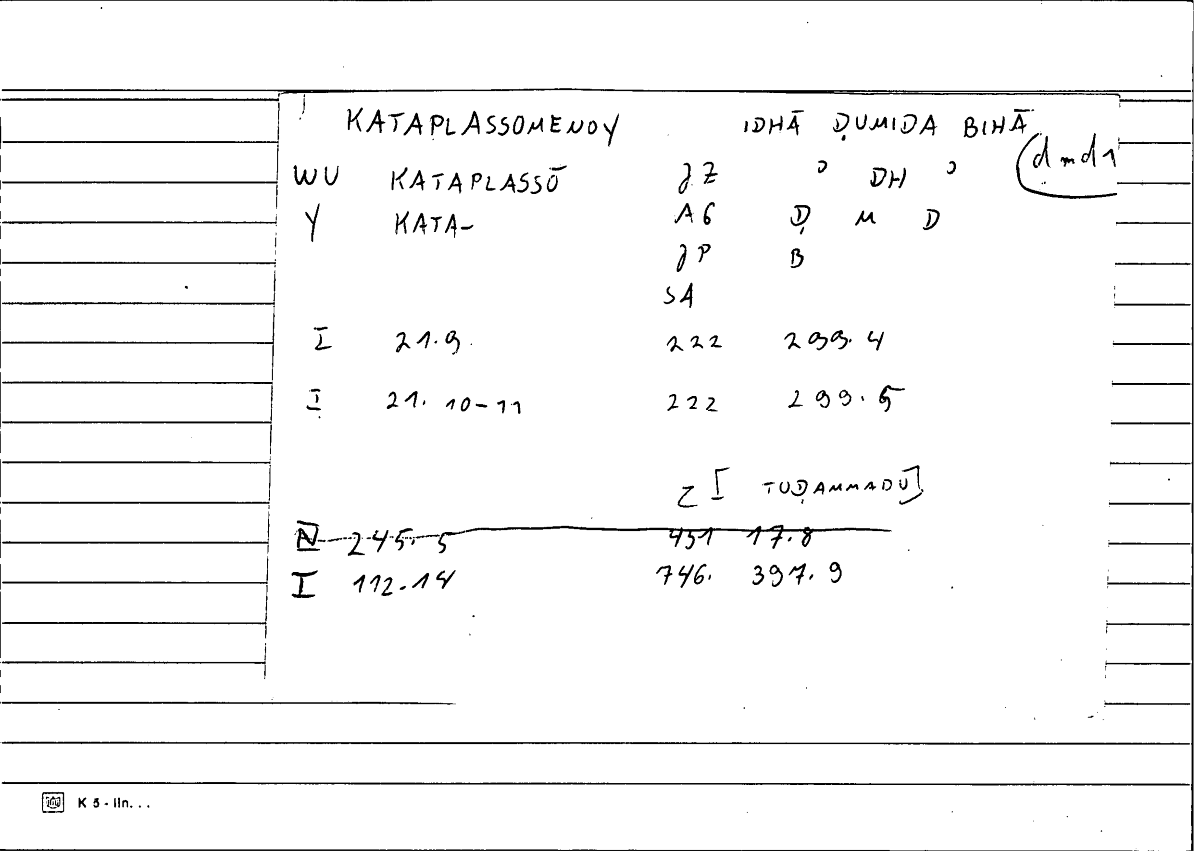 KATAPLASSOMENOY IDHĀ ḌUMIDA BIHĀ
WU KATAPLASSŌ JZ ʾ DH ʾ (ḍmd1
Y KATA- AG Ḍ M D
JP B
SA
I 21.9. 222 299.4
I 21.10-11 222 299.5
Z [TUḌAMMADU]
N 245.5 451 17.8
I 112.14 746. 397.9
K 5 - lln. . .